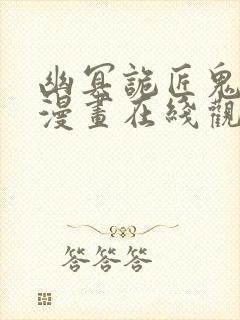 幽冥詭匠鬼
漫畫在綫觀
答答答